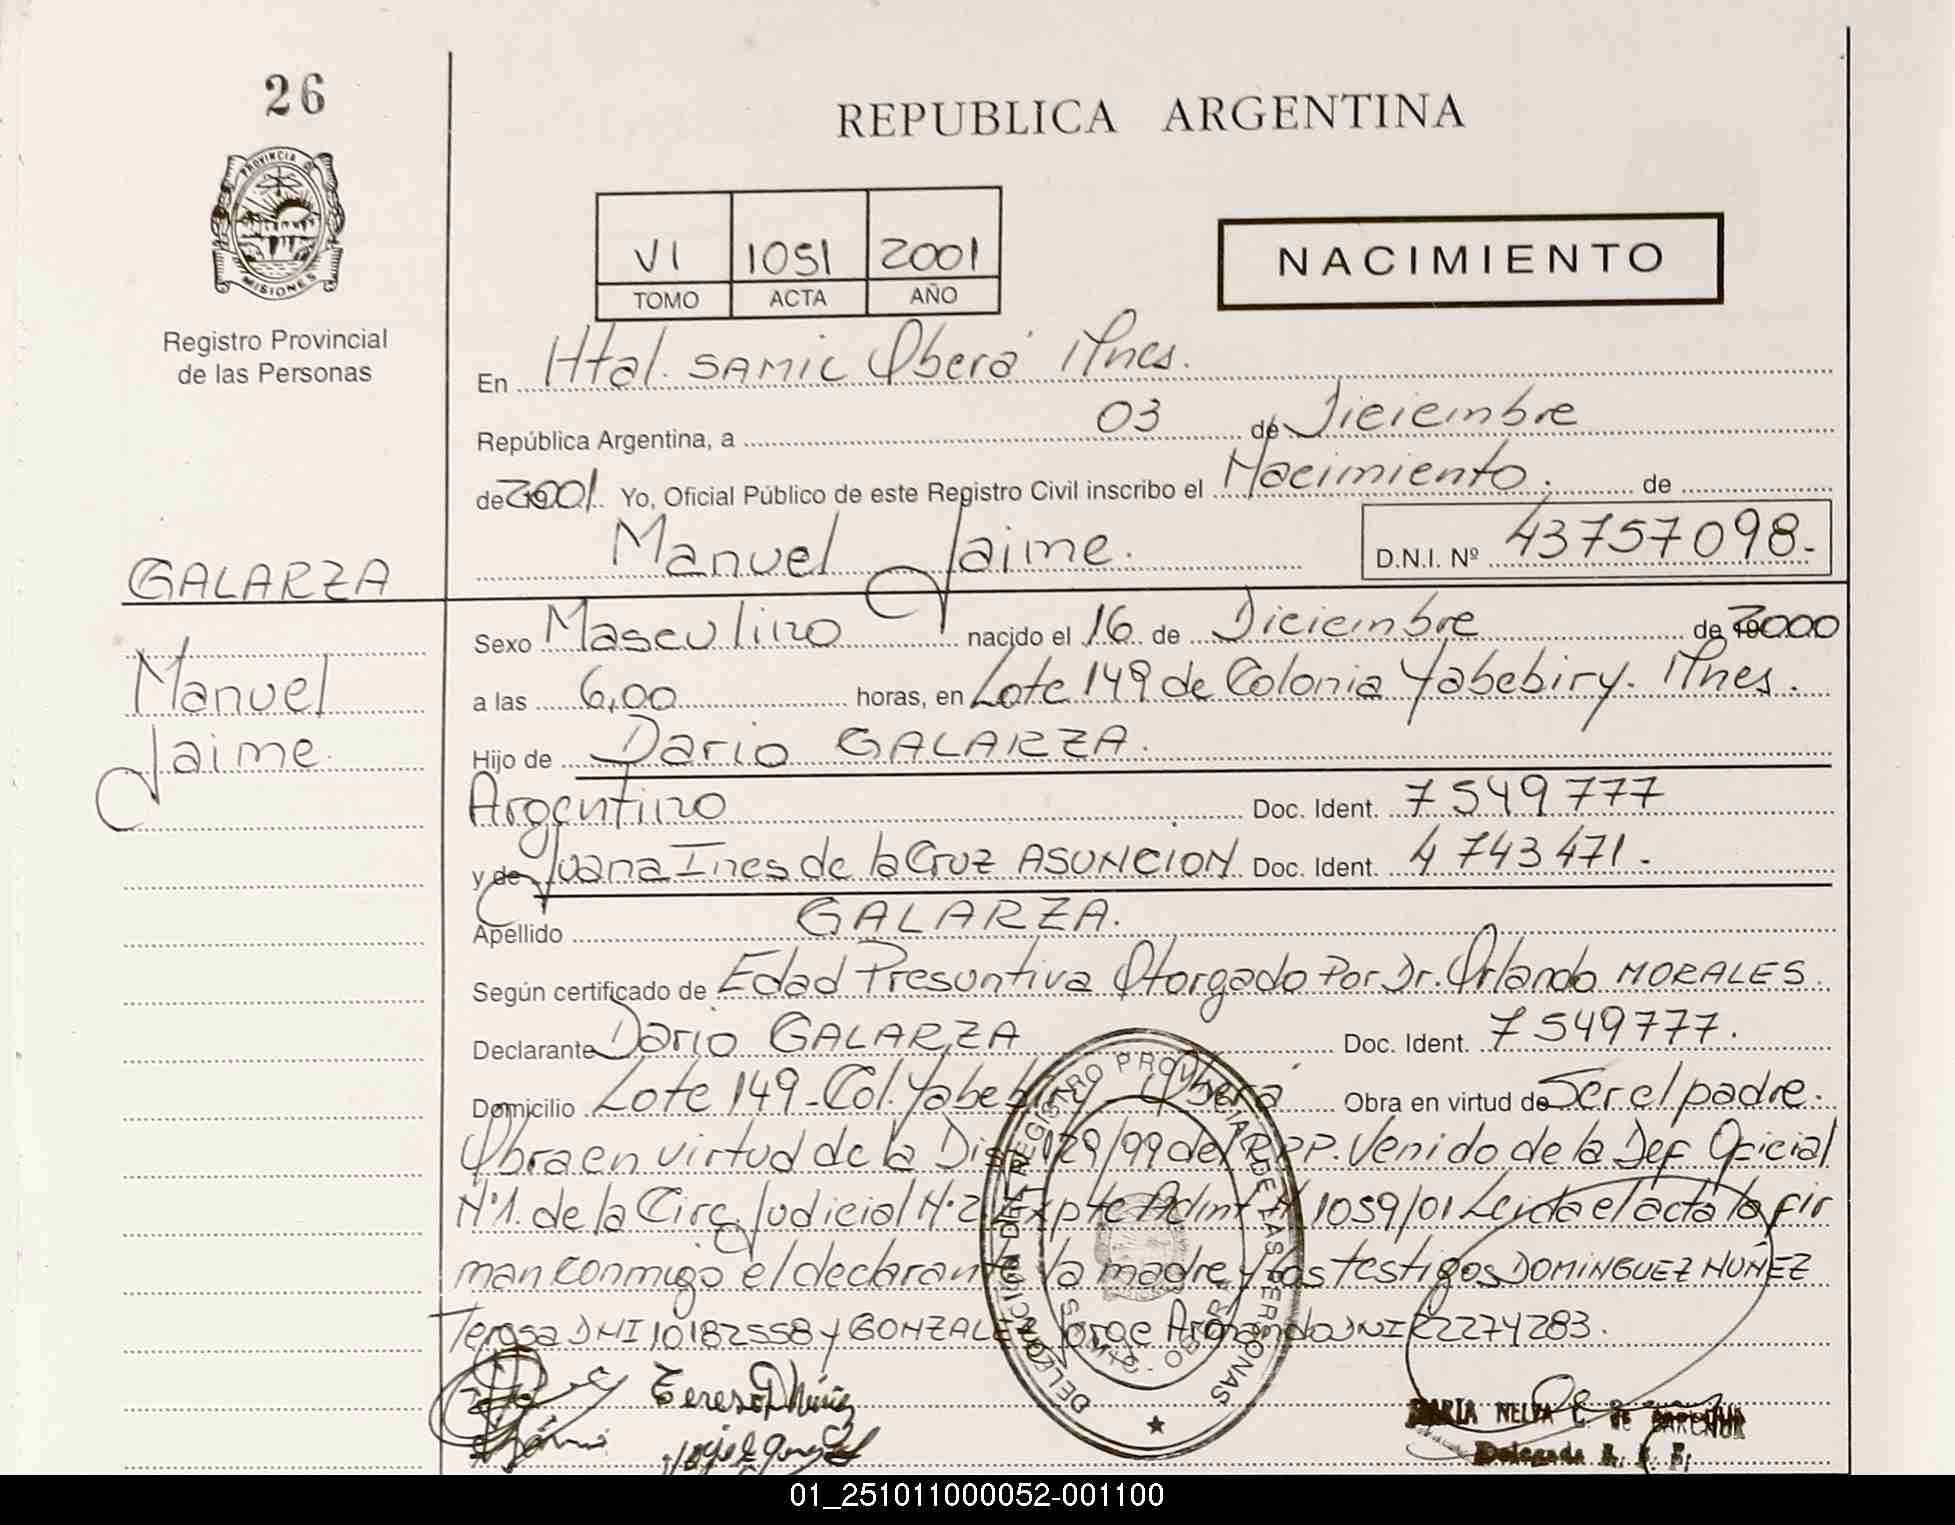 26
REPUBLICA ARGENTINA
PROVINCIA DE
MISIONES
Registro Provincial
de las Personas
VI 1051 2001
TOMO ACTA AÑO
NACIMIENTO
En Htal. SAMIC Oberá Mnes.
República Argentina, a 03 de Diciembre
de 2001. Yo, Oficial Público de este Registro Civil inscribo el Nacimiento. de
Manuel Jaime. D.N.I. Nº 43757098.-
GALARZA
Manuel
Jaime.
Sexo Masculino nacido el 16 de Diciembre de 2000
a las 6,00 horas, en Lote 149 de Colonia Yabebiry. Mnes.
Hijo de Dario GALARZA.
Argentino Doc. Ident. 7549777
y de Juana Ines de la Cruz ASUNCION Doc. Ident. 4743471.
Apellido GALARZA.
Según certificado de Edad Presuntiva Otorgado Por Dr. Orlando MORALES.
Declarante Dario GALARZA Doc. Ident. 7549777.
Domicilio Lote 149-Col. Yabebiry - Oberá Obra en virtud de Ser el padre.
Obra en virtud de la Dis. 129/99 del R.P.P. Venido de la Def Oficial
Nº1. de la Circ. Judicial Nº2. Expte Admt Nº 1059/01 Leida el acta la fir
man conmigo el declarante la madre y los testigos DOMINGUEZ NUÑEZ
Teresa DNI 10182558 y GONZALEZ Jorge Armando DNI 22274283.
DELEGACION DEL REGISTRO PROVINCIAL DE LAS PERSONAS
Teresa D Núñez
MARIA NELDA C. DE
Delegada R. P. P.
01_251011000052-001100